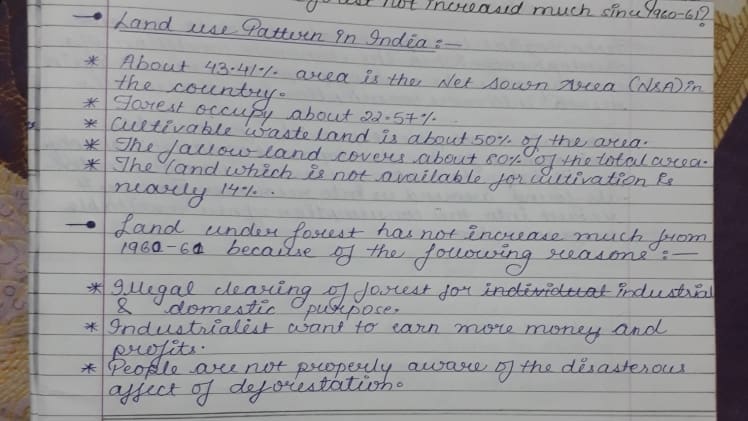 forest not increased much since 1960-61?
Land use Pattern in India:-
* About 43.41% area is the Net Sown Area (NSA) in
the country.
* Forest occupy about 22.57%.
* Cultivable waste land is about 50% of the area.
* The fallow land covers about 80% of the total area.
* The land which is not available for cultivation is
nearly 14%.
Land under forest has not increase much from
1960-61 because of the following reasons:-
* Illegal clearing of forest for individual industrial
& domestic purpose.
* Industrialist want to earn more money and
profits.
* People are not properly aware of the disasterous
affect of deforestation.